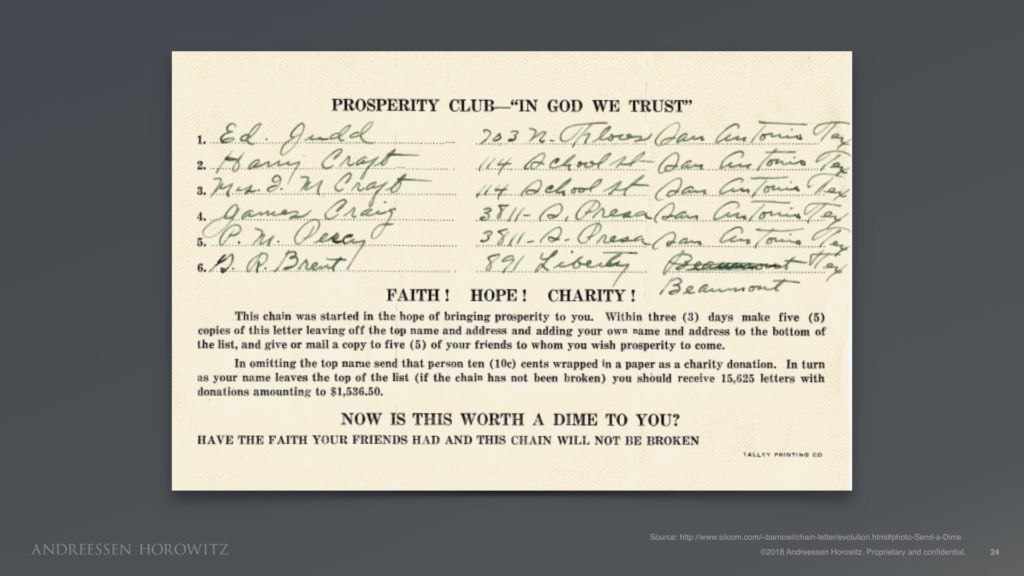 PROSPERITY CLUB—“IN GOD WE TRUST”
1. Ed. Judd 703 N. Flores San Antonio Tex
2. Harry Craft 114 School st San Antonio Tex
3. Mrs. J. M Craft 114 School st San Antonio Tex
4. James Craig 3811- S. Presa San Antonio Tex
5. P. M. Percy 3811- S. Presa San Antonio Tex
6. G. R. Brent 891 Liberty Beaumont Tex
Beaumont
FAITH! HOPE! CHARITY!
This chain was started in the hope of bringing prosperity to you. Within three (3) days make five (5)
copies of this letter leaving off the top name and address and adding your own name and address to the bottom of
the list, and give or mail a copy to five (5) of your friends to whom you wish prosperity to come.
In omitting the top name send that person ten (10c) cents wrapped in a paper as a charity donation. In turn
as your name leaves the top of the list (if the chain has not been broken) you should receive 15,625 letters with
donations amounting to $1,536.50.
NOW IS THIS WORTH A DIME TO YOU?
HAVE THE FAITH YOUR FRIENDS HAD AND THIS CHAIN WILL NOT BE BROKEN
TALLEY PRINTING CO
Source: http://www.silcom.com/~barnowl/chain-letter/evolution.html#photo-Send-a-Dime
ANDREESSEN HOROWITZ
©2018 Andreessen Horowitz. Proprietary and confidential. 24